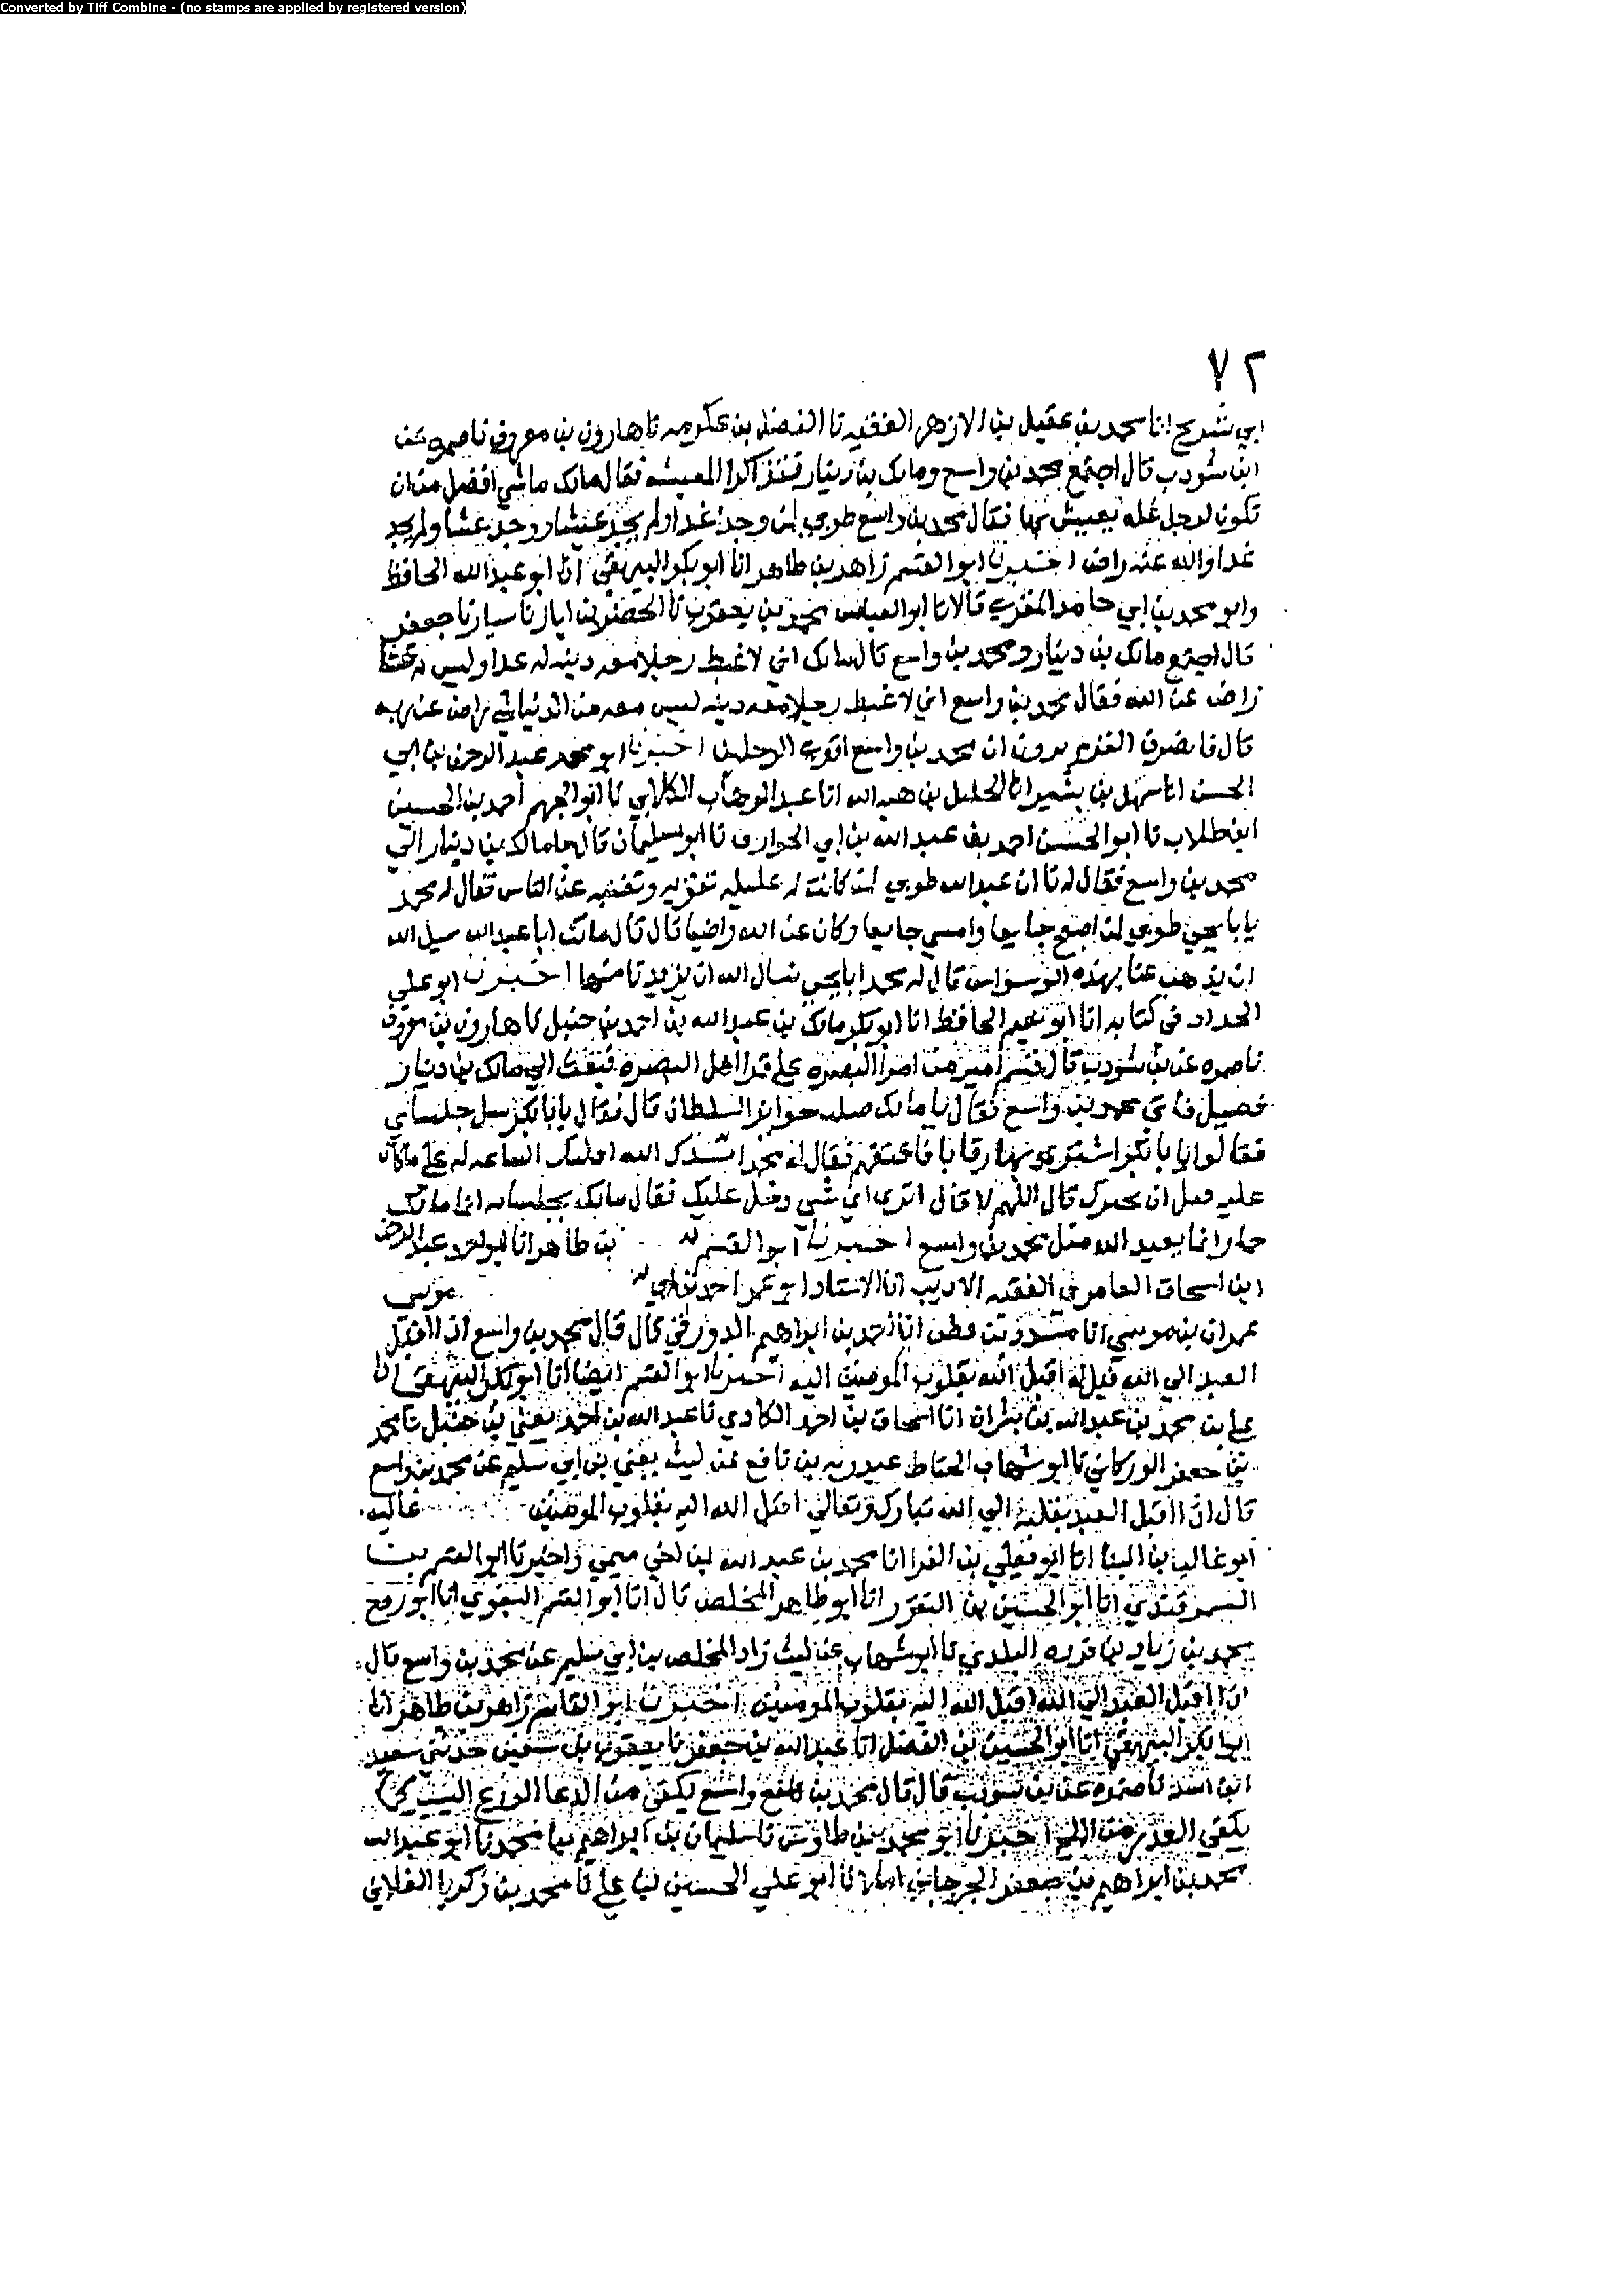 Converted by Tiff Combine - (no stamps are applied by registered version)
٧٢
ابي شريح انا محمد بن عقيل بن الازهر الفقيه نا الفضل بن عكرمه نا هارون بن معروف نا ضمره عن
ابن شودب قال اجتمع محمد بن واسع ومالك بن دينار فتذاكرا المعيشه فقال مالك ما شي افضل من ان
تكون لرجل غله يعيش بها فقال محمد بن واسع طوبى لمن وجد غدا ولم يجد عشا ووجد عشا ولم يجد
غدا والله عنه راض اخبرنا ابو القسم زاهر بن طاهر انا ابو بكر البيهقي انا ابو عبد الله الحافظ
وابو محمد بن ابي حامد المقري قالا نا ابو العباس محمد بن يعقوب نا الخضر بن ابان نا سيار نا جعفر
قال اجتمع مالك بن دينار ومحمد بن واسع قال مالك اني لاغبط رجلا معه دينه له غدا وليس له عشا
راض عن الله فقال محمد بن واسع اني لاغبط رجلا معه دينه ليس معه من الدنيا شي راض عن ربه
قال فانصرف القوم يرون ان محمد بن واسع اقوى الرجلين اخبرنا ابو محمد عبد الرحمن بن ابي
الحسن انا سهل بن بشر انا الخليل بن هبه الله انا عبد الوهاب الكلابي نا ابو الجهم احمد بن الحسين
ابن طلاب نا ابو الحسن احمد بن عبد الله بن ابي الحواري نا ابو سليمان قال جا مالك بن دينار الى
محمد بن واسع فقال له يا ابا عبد الله طوبى لمن كانت له غليله تقوته وتغنيه عن الناس فقال له محمد
يابا يحيى طوبى لمن اصبح جايعا وامسى جايعا وكان عن الله راضيا قال قال مالك ابا عبد الله سل الله
ان يذهب عنا بهذه الوسواس قال له محمد ابا يحيى نسال الله ان يزيدنا منها اخبرنا ابو علي
الحداد في كتابه انا ابو نعيم الحافظ انا ابو بكر مالك بن عبد الله بن احمد بن حنبل نا هارون بن معروف
نا ضمره عن بن شودب قال قسم امير من امرا البصره على قرا اهل البصره فبعث الى مالك بن دينار
فقبل فاتى محمد بن واسع فقال يا مالك قبلت جوائز السلطان قال فقال يابا بكر سل جلساي
فقالوا يابا بكر اشترى بها رقابا فاعتقهم فقال له محمد انشدك الله اقلبك الساعه له على ما كان
عليه قبل ان يجيزك قال اللهم لا قال ترى اي شي دخل عليك فقال مالك لجلسايه انما مالك
حمار انما يعبد الله مثل محمد بن واسع اخبرنا ابو القسم بن طاهر انا ابو عبد الرحمن
ابن اسحاق العامري الفقيه الاديب انا الاستاذ ابو عمر احمد بن ابي موسى
عمران بن موسى انا مسدد بن قطن انا احمد بن ابراهيم الدورقي قال قال محمد بن واسع اذا اقبل
العبد الى الله قبل له اقبل الله بقلوب المومنين اليه اخبرنا ابو القسم ايضا انا ابو بكر البيهقي انا
علي بن محمد بن عبد الله بن بشران انا اسحاق بن احمد الكاذي نا عبد الله بن احمد يعني بن حنبل نا محمد
بن جعفر الوركاني نا ابو شهاب الحناط عبد ربه بن نافع عن ليث يعني بن ابي سليم عن محمد بن واسع
قال اذا اقبل العبد بقلبه الى الله تبارك وتعالى اقبل الله اليه بقلوب المومنين غاليه
ابو غالب بن البنا انا ابو يعلي بن الفرا انا محمد بن عبد الله بن اخي ميمي واخبرنا ابو القسم بن
السمرقندي انا ابو الحسين بن النقور انا ابو طاهر المخلص قال انا ابو القسم البغوي انا ابو روح
محمد بن زياد بن فروه البلدي نا ابو شهاب عن ليث زاد المخلص بن ابي سليم عن محمد بن واسع قال
اذا اقبل العبد الى الله اقبل الله اليه بقلوب المومنين اخبرنا ابو القاسم زاهر بن طاهر انا
ابو بكر البيهقي انا ابو الحسين بن الفضل انا عبد الله بن جعفر نا يعقوب بن سفين حدثني سعيد
ابن اسد نا ضمره عن بن شودب قال قال محمد بن واسع يكفي من الدعا الورع اليسير كما
يكفي القدر من الملح اخبرنا ابو محمد بن طاوس نا سليمان بن ابراهيم بن محمد نا ابو عبد الله
محمد بن ابراهيم بن جعفر الجرجاني املا نا ابو علي الحسين بن علي نا محمد بن زكريا الغلابي